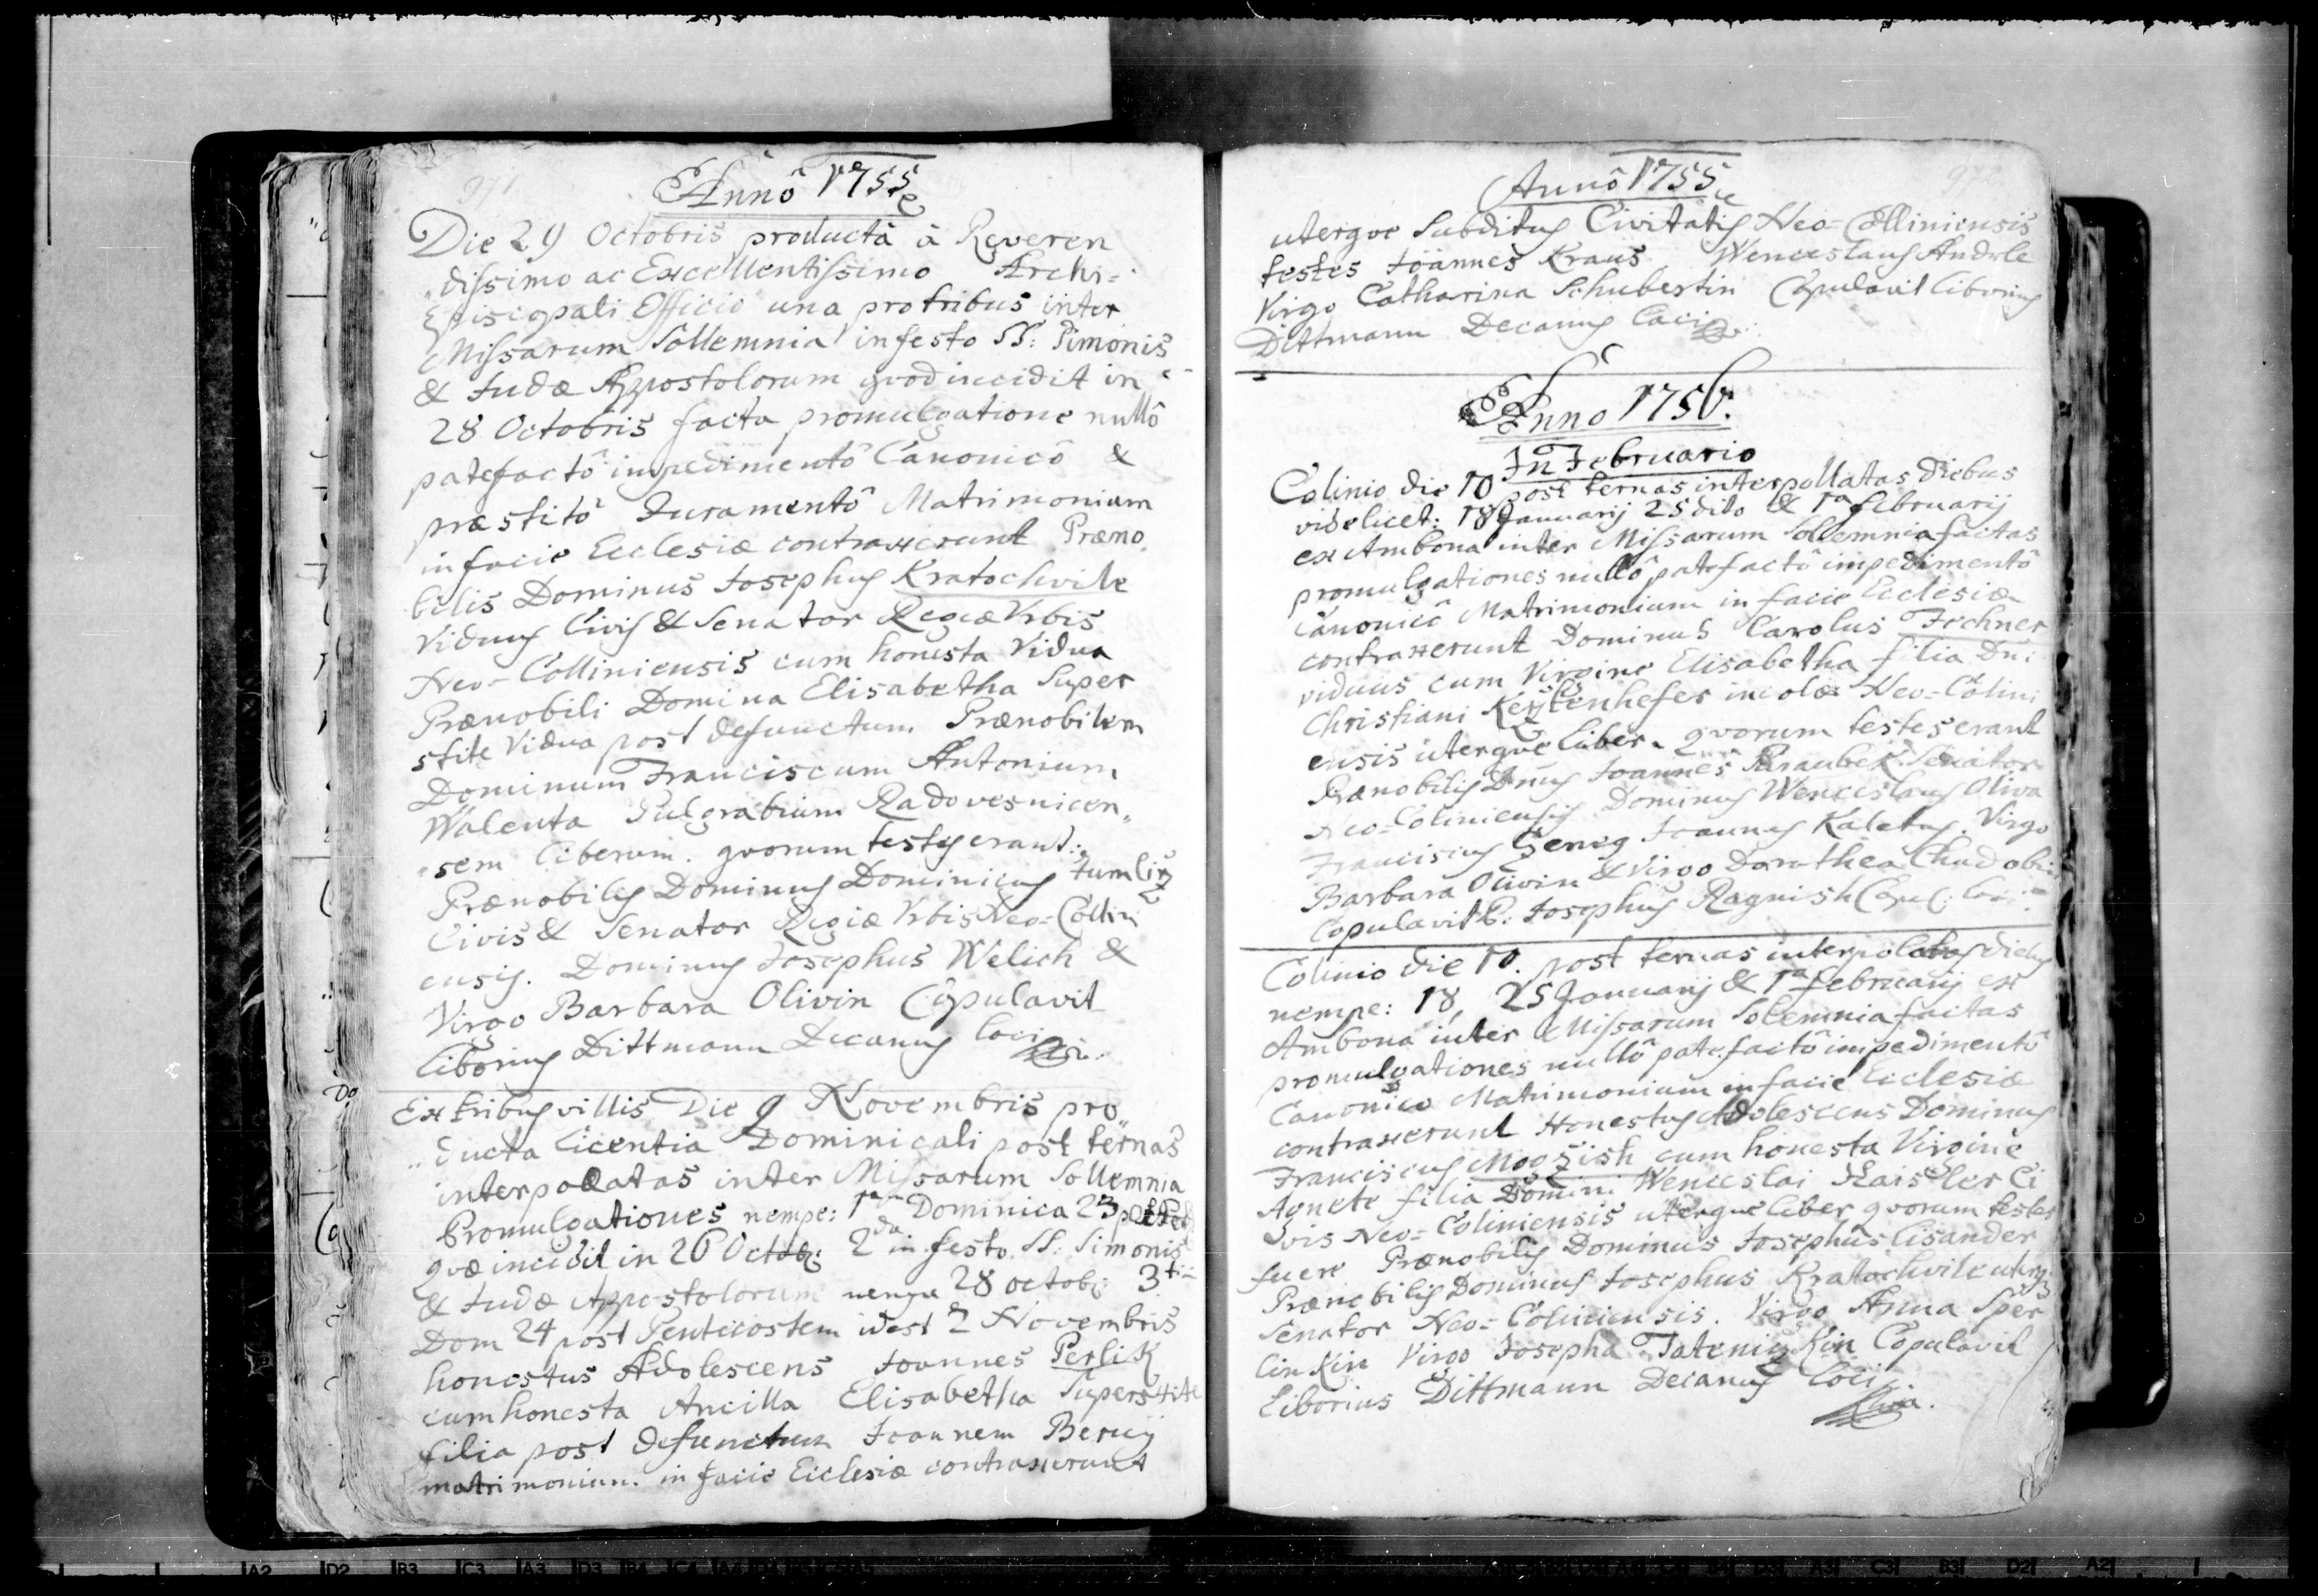 971
Annô 1755
Die 29 Octobris productâ â Reveren
"dissimo ac Excellentissimo Archi=
Episcopali Officio una pro tribus inter
Missarum Sollemnia in festo SS: Simonis
& Judæ Apostolorum qvod incidit in
28 Octobris facta promulgatione nullô
patefactô impedimentô Canonicô &
præstitô Juramentô Matrimonium
in facie Ecclesiæ contraxerunt Præno
bilis Dominus Josephus Kratochvile
Viduus Civis & Senator Regiæ Vrbis
Neo=Colliniensis cum honesta Vidua
Prænobili Domina Elisabetha Super
stite Vidua post defunctum Prænobilem
Dominum Franciscum Antonium
Walenta Radovesnicen„
„sem liberum. qvorum testes erant:
Prænobilis Dominus Dominicus
Civis & Senator Regiæ Vrbis Neo=Collini
ensis. Dominus Josephus Welich &
Virgo Barbara Olivin Copulavit
Liborius Dittmann Decanus loci
Ex tribus villis Die 9 Novembris pro„
„ducta licentia Dominicali post ternas
interpolatas inter Missarum Sollemnia
Promulgationes nempe: 1ma Dominica 23 post
qvæ incidit in 26 Octob: 2da in festo SS: Simonis
& Judæ Appostolorum nempe 28 octob: 3tia
Dom 24 post Pentecostem idest 2 Novembris
honestus Adolescens Joannes Perlik
cum honesta Ancilla Elisabetha Superstite
filia post defunctum Joannem
matrimonium in facie Ecclesiæ contraxerunt
Annô 1755
utergve Subditus Civitatis Neo=Colliniensis
testes Joannes Kraus Wenceslaus Andrle
Virgo Catharina Schubertin Copulavit Liborius
Dittmann Decanus Loci
Anno 1756.
In Februario
Colinio die 10 post ternas interpollatas diebus
videlicet: 18 Januarij 25 dito & 1ma februarij
ex Ambona inter Missarum Sollemnia factas
promulgationes nullô patefactô impedimentô
Canonicô Matrimonium in facie Ecclesiæ
contraxerunt Dominus Carolus Fechner
viduus cum Virgine Elisabetha filia Dni
Christiani incolæ Neo=Colini
ensis utergve liber. qvorum testes erant
Prænobilis Dnus Joannes Senator
Neo=Coliniensis Dominus Wenceslaus Oliva
Franciscus Joannes Kaletus. Virgo
Barbara Olivin & Virgo Dorothea
Copulavit P: Josephus Ragnish loci
Colinio die 10. post ternas interpolatas diebus
nempe: 18, 25 Januarij & 1ma februarij ex
Ambona inter Missarum Solemnia factas
promulgationes nullô patefactô impedimentô
Canonico Matrimonium in facie Ecclesiæ
contraxerunt Honestus Adolescens Dominus
Franciscus cum honesta Virgine
Agnete filia Domini Wenceslai Ci
vis Neo=Coliniensis utergve liber qvorum testes
fuere Prænobilis Dominus Josephus Lisander
Prænobilis Dominus Josephus Kratochvile
Senator Neo=Coliniensis. Virgo Anna Sper
linkin Virgo Josepha Copulavit
Liborius Dittmann Decanus Loci